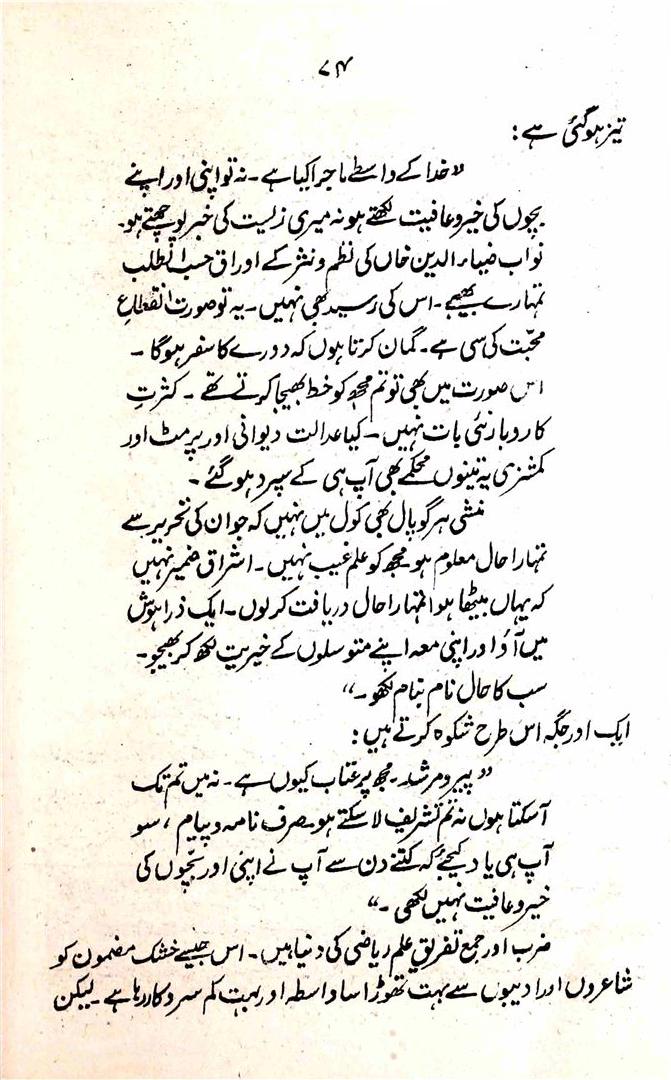 ۷۴
تیز ہوگئی ہے:
”خدا کے واسطے ماجرا کیا ہے۔ نہ تو اپنی اور اپنے
بچوں کی خیر و عافیت لکھتے ہو نہ میری زیست کی خبر پوچھتے ہو۔
نواب ضیاء الدین خاں کی نظم و نثر کے اوراق حسب الطلب
تمہارے بھیجے۔ اس کی رسید بھی نہیں۔ یہ تو صورت انقطاعِ
محبّت کی سی ہے۔ گمان کرتا ہوں کہ دورے کا سفر ہوگا۔
اس صورت میں بھی تو تم مجھ کو خط بھیجا کرتے تھے۔ کثرتِ
کاروبار نئی بات نہیں۔ کیا عدالت دیوانی اور پرمٹ اور
کمشنری یہ تینوں محکمے بھی آپ ہی کے سپرد ہو گئے۔
منشی ہرگوپال بھی کول میں نہیں کہ جو ان کی تحریر سے
تمہارا حال معلوم ہو۔ مجھ کو علم غیب نہیں۔ اشراق ضمیر نہیں
کہ یہاں بیٹھا ہوا تمہارا حال دریافت کرلوں۔ ایک ذرا ہوش
میں آؤ اور اپنی معہ اپنے متوسلوں کے خیریت لکھ کر بھیجو۔
سب کا حال نام بنام لکھو۔“
ایک اور جگہ اس طرح شکوہ کرتے ہیں:
”پیر و مرشد۔ مجھ پر عتاب کیوں ہے۔ نہ میں تم تک
آسکتا ہوں نہ تم تشریف لا سکتے ہو۔ صرف نامہ و پیام، سو
آپ ہی یاد کیجئے کہ کتنے دن سے آپ نے اپنی اور بچّوں کی
خیر و عافیت نہیں لکھی۔“
ضرب اور جمع تفریق علم ریاضی کی دنیا ہیں۔ اس جیسے خشک مضمون کو
شاعروں اور ادیبوں سے بہت تھوڑا سا واسطہ اور بہت کم سروکار رہا ہے۔ لیکن